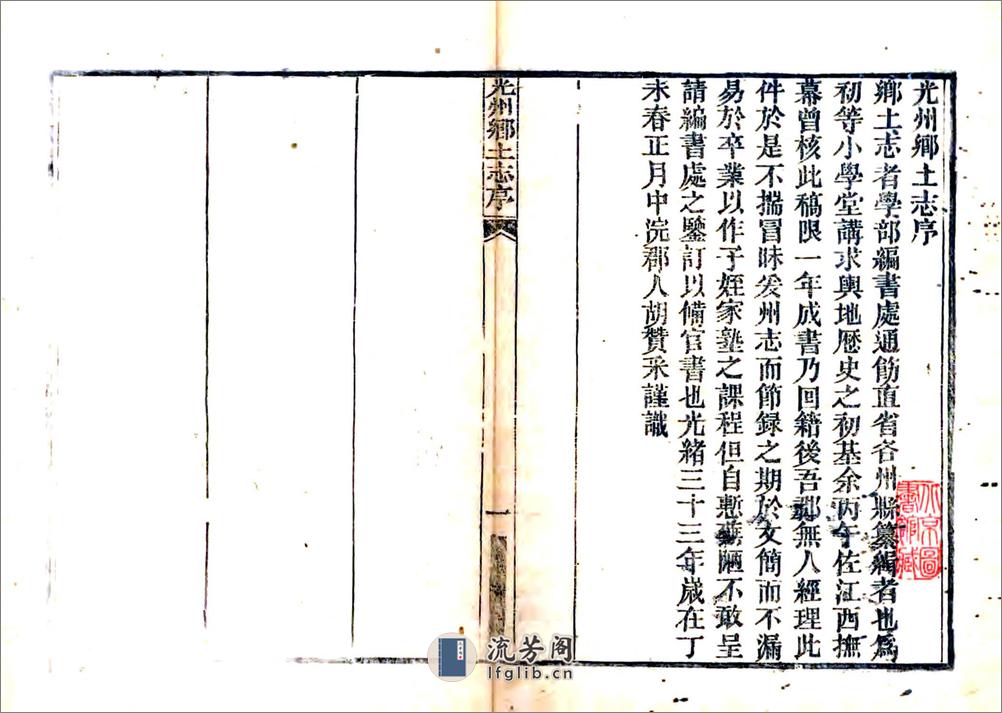 光州鄉土志序
鄉土志者學部編書處通飭直省各州縣纂緝者也爲
初等小學堂講求輿地歷史之初基余丙午佐江西撫
幕曾核此稿限一年成書乃回籍後吾郡無人經理此
件於是不揣冒昧爰州志而節録之期於文簡而不漏
易於卒業以作子姪家塾之課程但自慙蕪陋不敢呈
請編書處之鑒訂以備官書也光緒三十三年歲在丁
未春正月中浣郡人胡贊采謹識
光州鄉土志序
一
北京圖
書館藏
流芳阁
lfglib.cn